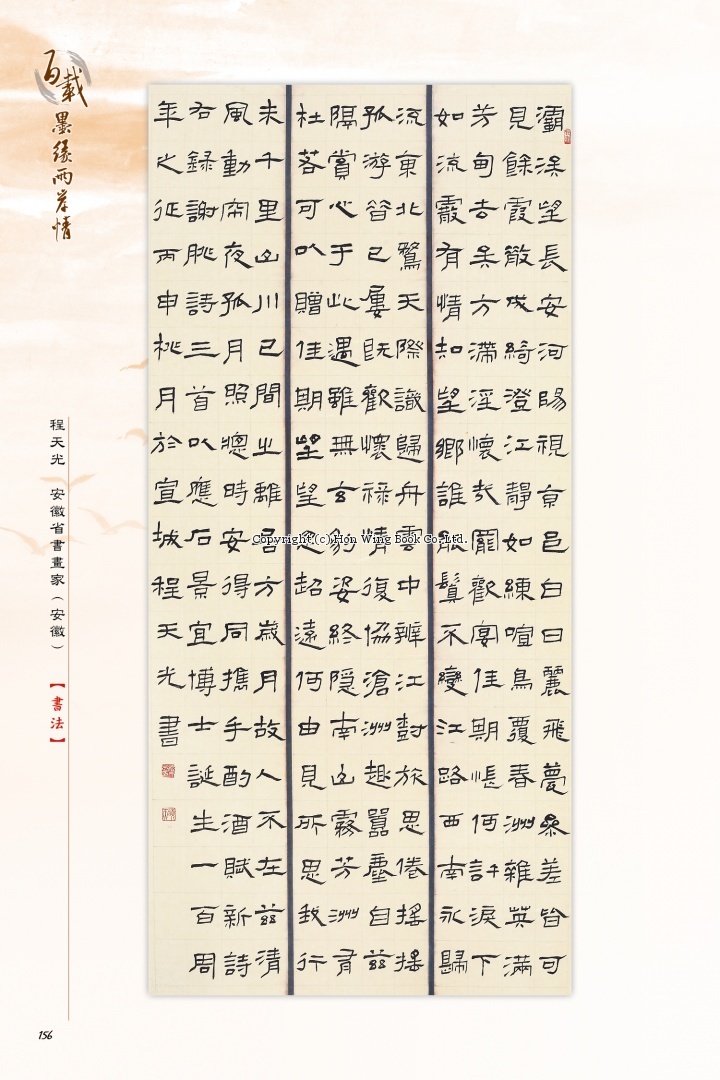 百載墨緣兩岸情
灞涘望長安河陽視京邑白日麗飛甍參差皆可
見餘霞散成綺澄江靜如練喧鳥覆春洲雜英滿
芳甸去矣方滯淫懷哉罷歡宴佳期悵何許淚下
如流霰有情知望鄉誰能鬒不變江路西南永歸
流東北騖天際識歸舟雲中辨江樹旅思倦搖搖
孤游昔已屢既歡懷祿情復協滄洲趣囂塵自茲
隔賞心于此遇雖無玄豹姿終隱南山霧芳洲有
杜若可以贈佳期望望忽超遠何由見所思我行
未千里山川已間之離居方歲月故人不在茲清
風動帘夜孤月照牕時安得同攜手酌酒賦新詩
右錄謝朓詩三首以應石景宜博士誕生一百周
年之征丙申桃月於宣城程天光書
Copyright (c) Hon Wing Book Co., Ltd.
程天光 安徽省書畫家（安徽）【書法】
156